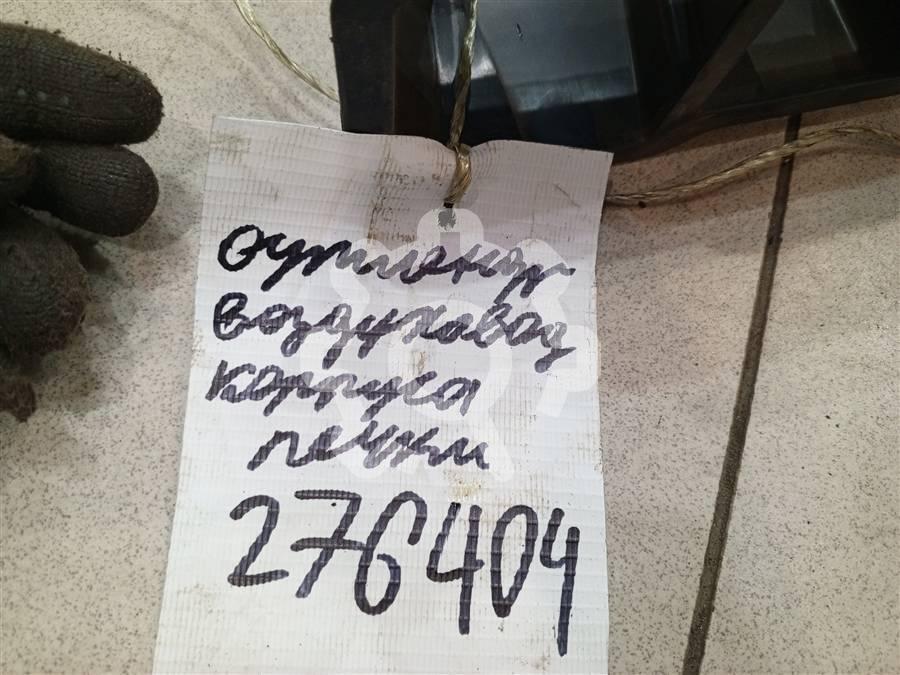 оутлендр
воздухавод
корпуса
печки
276404